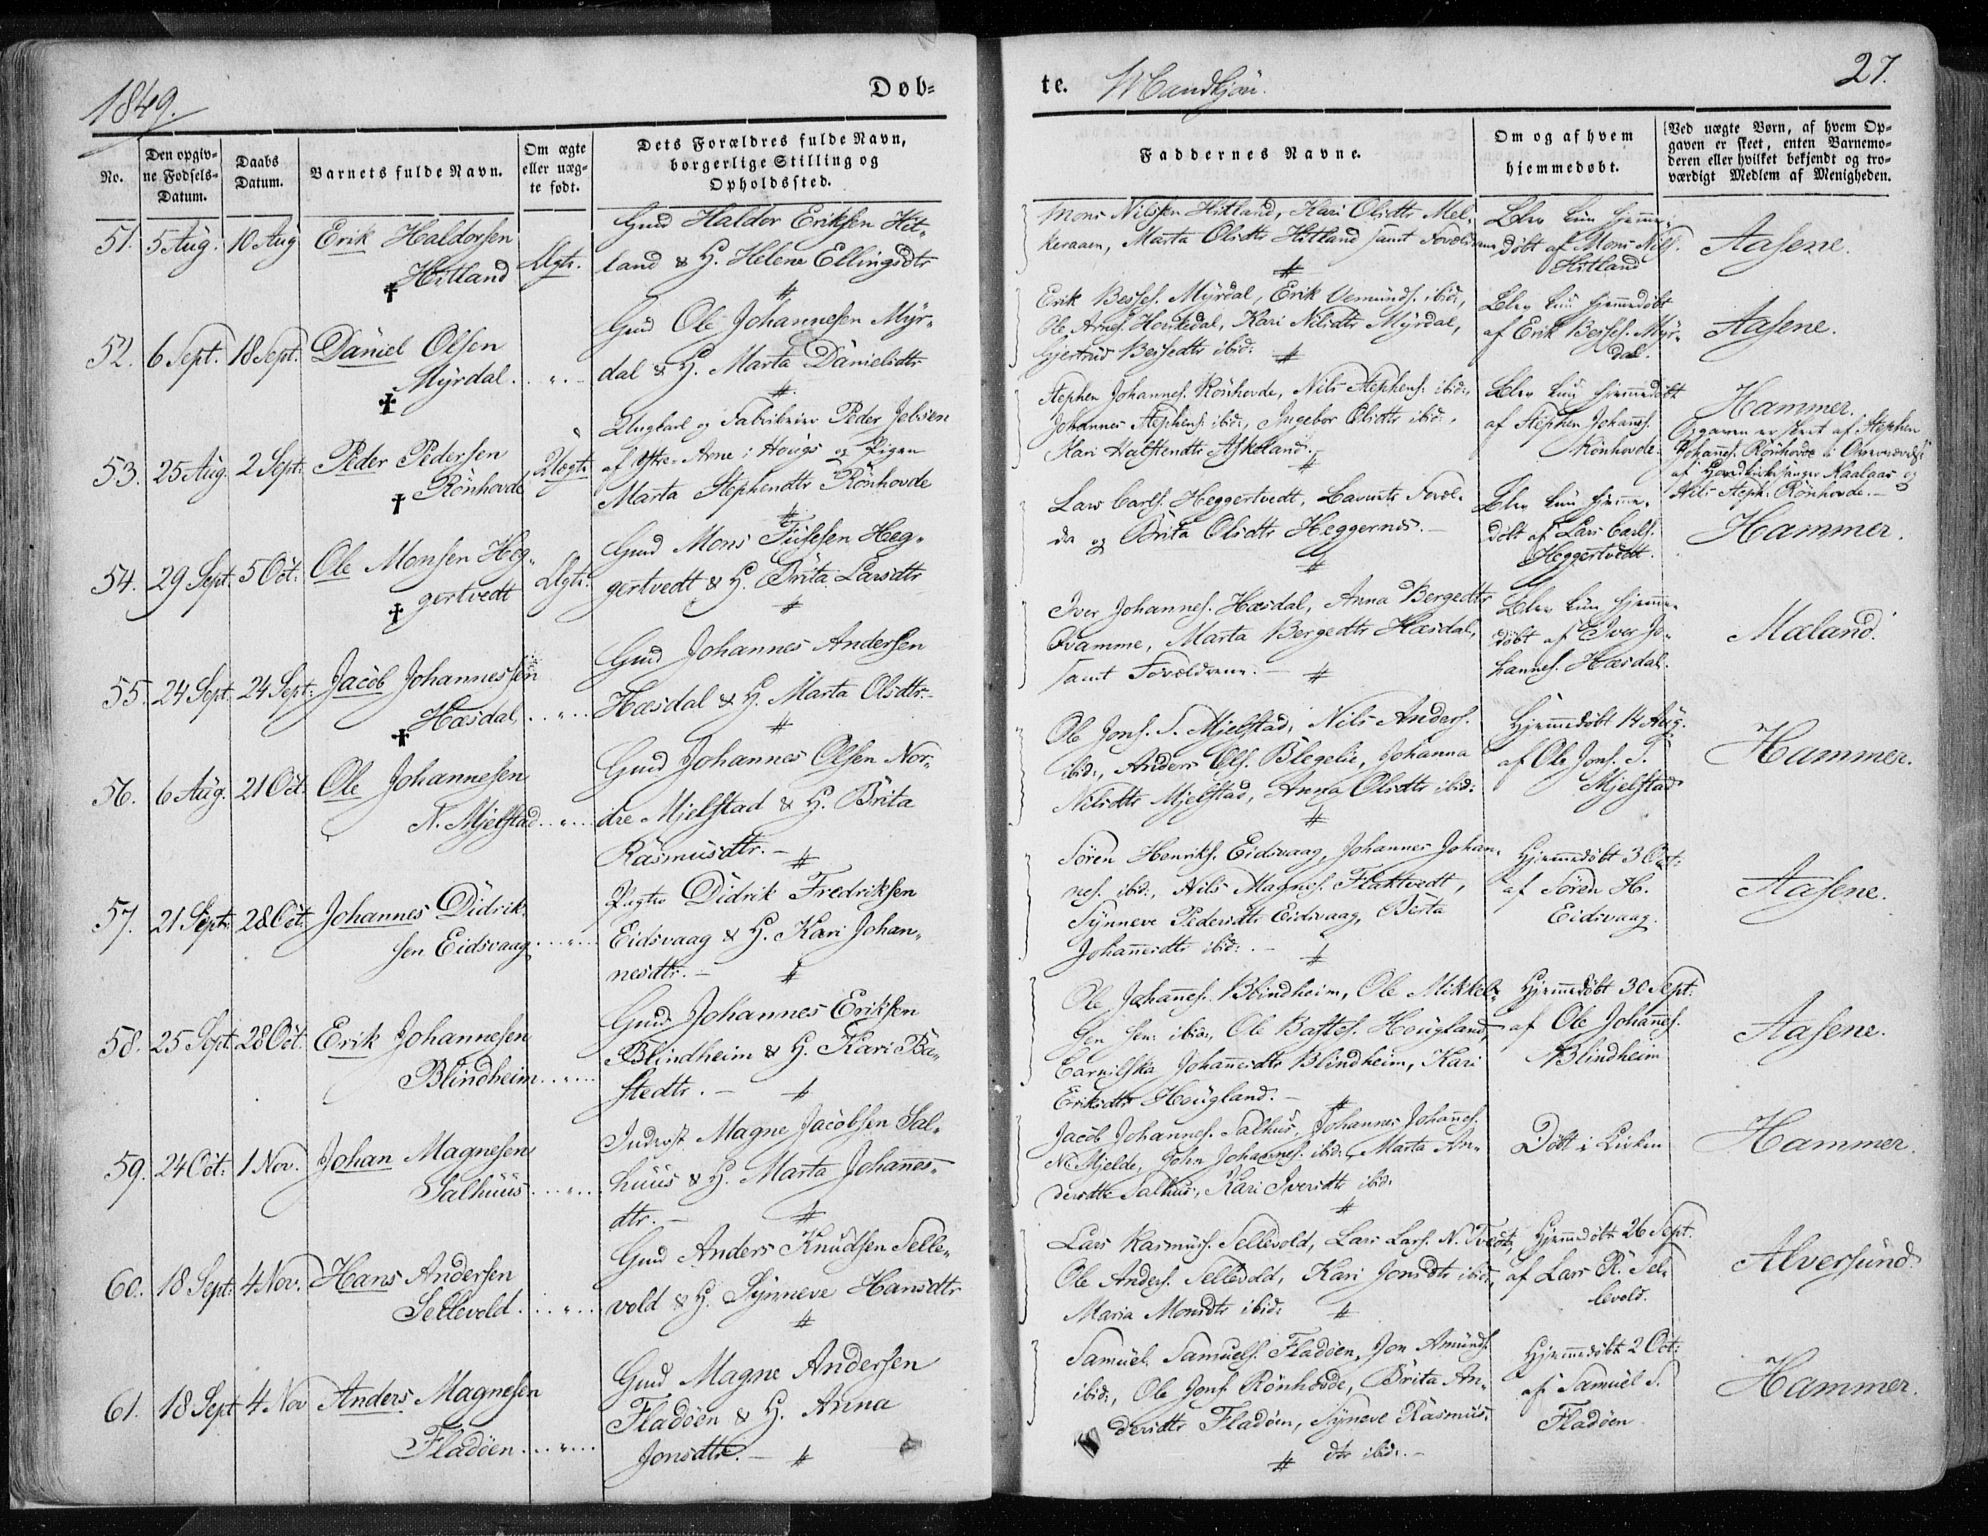 1849.
Døb-
te. Mandkjøn.
27.
No.
Den opgiv-
ne Fødsels-
Datum.
Daabs
Datum.
Barnets fulde Navn.
Om ægte
eller uæg-
te født.
Dets Forældres fulde Navn,
borgerlige Stilling og
Opholdssted.
Faddernes Navne.
Om og af hvem
hjemmedøbt.
Ved uægte Børn, af hvem Op-
gaven er skeet, enten Barnemo-
deren eller hvilket bekjendt og tro-
værdigt Medlem af Menigheden.
51. 5 Aug. 10 Aug Erik Haldorsen
Hitland
Ægte.
Gmd Haldor Eriksen Hit-
land & H. Helene Ellingsdtr
Mons Nilssen Hitland, Kari Olsdtr Mel-
keraaen, Marta Olsdtr Hitland samt Forældrene
Blev kun hjemme-
døbt af Mons Nils.
Hitland
Aasene.
52. 6 Sept. 18 Sept. Daniel Olsen
Myrdal. . „ .
Gmd Ole Johannesen Myr-
dal & H. Marta Danielsdtr
Erik Besses. Myrdal, Erik Vemunds. ibid,
Ole Arnes. Hordedal, Kari Nilsdtr Myrdal,
Gjertrud Bessedtr ibid:
Blev kun hjemmedøbt
af Erik Besses. Myr-
dal.
Aasene.
53. 25 Aug. 2 Sept. Peder Pedersen
Rönhovde
Uægte
Ungkarl og Fabrikeier Peder Jebsen
af Ystre-Arne i Hougs og Pigen
Marta Stephensdtr Rönhovde
Stephen Johannes. Rönhovde, Nils Stephens. ibid:,
Johannes Stephens: ibid:, Ingebor Olsdtr ibid:,
Kari Halstendtr Askeland.
Blev kun hjemmedøbt
af Stephen Johannes.
Rönhovde.
Hammer.
Opgaven er skeet af Stephen
Johannes. Rönhovde i Overværelse
af Kirkesanger Kaalaas og
Nils Steph. Rönhovde.
54. 29 Sept. 5 Oct. Ole Monsen Heg-
gertvedt
Ægte.
Gmd Mons Fusesen Heg-
gertvedt & H. Brita Larsdtr
Lars Carls. Heggertvedt, Barnets Foræl-
dre og Brita Olsdtr Heggernes.
Blev kun hjemme-
døbt af Lars Carls.
Heggertvedt.
Hammer.
55. 24 Sept. 24 Sept. Jacob Johannessen
Hæsdal. . „ .
Gmd Johannes Andersen
Hæsdal & H. Marta Olsdtr.
Iver Johannes. Hæsdal, Anna Bergedtr
Qvamme, Marta Bergedtr Hæsdal,
samt Forældrene.
Blev kun hjemme-
døbt af Iver Jo-
hannes. Hæsdal.
Mæland.
56. 6 Aug. 21 Oct. Ole Johannesen
N. Mjelstad . „ .
Gmd Johannes Olsen Nor-
dre Mjelstad & H. Brita
Rasmusdtr.
Ole Jons. S. Mjelstad, Nils Anders.
ibid:, Anders Ols. Blegelie, Johanna
Nilsdtr Mjelstad, Anna Olsdtr ibid:
Hjemmedøbt 14 Aug.
af Ole Jons. S.
Mjelstad
Hammer.
57. 21 Sept. 28 Oct. Johannes Didrik-
sen Eidsvaag . „ .
Didrik Fredriksen
Eidsvaag & H. Kari Johan-
nesdtr.
Sören Henriks. Eidsvaag, Johannes Johan-
nes. ibid., Nils Magnes. Flaktvedt,
Synneve Pedersdtr Eidsvaag, Berta
Johannesdtr ibid:.
Hjemmedøbt 3 Oct:
af Sören H.
Eidsvaag.
Aasene.
58. 25 Sept. 28 Oct. Erik Johannesen
Blindheim . „ .
Gmd. Johannes Eriksen
Blindheim & H. Kari Ba-
stedtr.
Ole Johannes. Blindheim, Ole Mikkel-
sen Sen: ibid., Ole Bastes. Hougland,
Carnilska Johannesdtr Blindheim, Kari
Eriksdtr Hougland.
Hjemmedøbt 30 Sept.
af Ole Johannes.
Blindheim
Aasene.
59. 24 Oct. 1 Nov. Johan Magnesen
Salhuus . „ .
Inderst Magne Jacobsen Sal-
huus & H. Marta Johannes-
dtr.
Jacob Johannes. Salhus, Johannes Johannes.
N. Mjelde, John Johannes. ibid:, Marta An-
dersdtr Salhus, Kari Iversdtr ibid:
Døbt i Kirken
Hammer.
60. 18 Sept. 4 Nov. Hans Andersen
Sellevold . „ .
Gmd Anders Knudsen Selle-
vold & H. Synneve Hansdtr
Lars Rasmus. Sellevold, Lars Lars. N. Tveit,
Ole Anders. Sellevold, Kari Jonsdtr ibid:,
Maria Monsdtr ibid:
Hjemmedøbt 26 Sept.
af Lars R. Sel-
levold.
Alversund.
61. 18 Sept 4 Nov Anders Magnesen
Fladöen . „ .
Gmd Magne Andersen
Fladöen & H. Anna
Jonsdtr.
Samuel Samuels. Fladöen, Jon Amunds.
ibid:, Ole Jons. Rönhovde, Brita An-
dersdtr Fladöen, Syneve Rasmus-
dtr ibid:.
Hjemmedøbt 2 Oct:
af Samuel S.
Fladöen
Hammer.